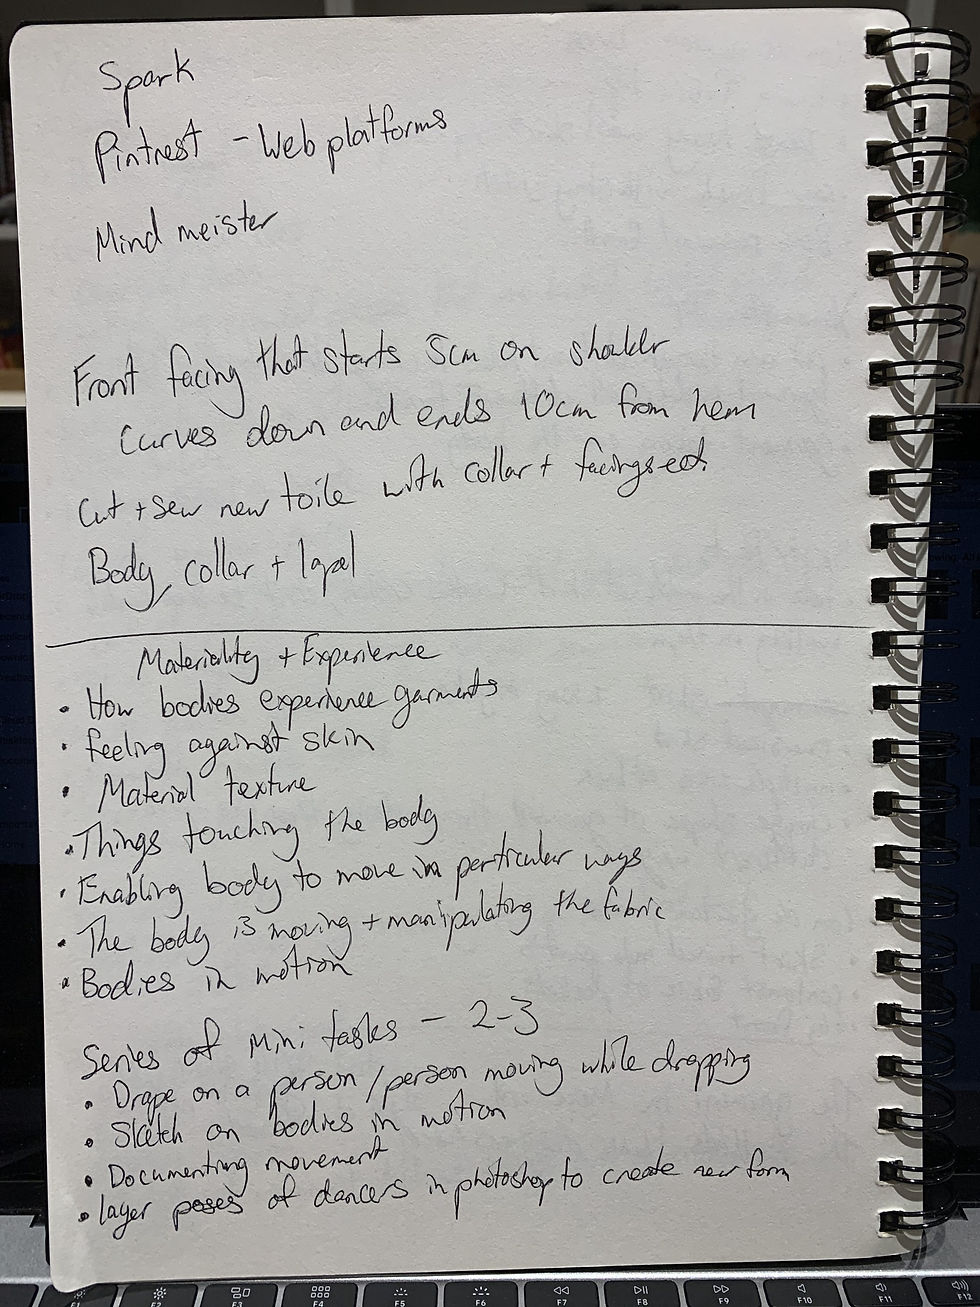 Spark
Pintrest - Web platforms
Mind meister
Front facing that starts 5cm on shoulder
curves down and ends 10cm from hem
Cut + sew new toile with collar + facings
Body, collar + lapel
Materiality + Experience
• How bodies experience garments
• feeling against skin
• Material texture
• Things touching the body
• Enabling body to move in perticular ways
• The body is moving + manipulating the fabric
• Bodies in motion
Series of Mini tasks - 2-3
• Drape on a person/person moving while drapping
• Sketch on bodies in motion
• Documenting movement
• layer poses of dancers in photoshop to create new form
F1 F2 F3 F4 F5 F6 F7 F8 F9 F10 F11 F12